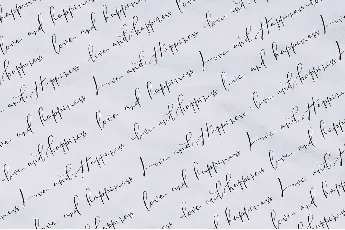 love and happiness
love and happiness
and Happiness love and happiness
and happiness Love and Happiness love and happiness
love and happiness love and happiness Love and Happiness
Love and Happiness love and happiness love and happiness
love and happiness Love and Happiness love and happiness
happiness love and happiness Love and Happiness
love and happiness love and happiness
happiness Love and Happiness
love and happiness